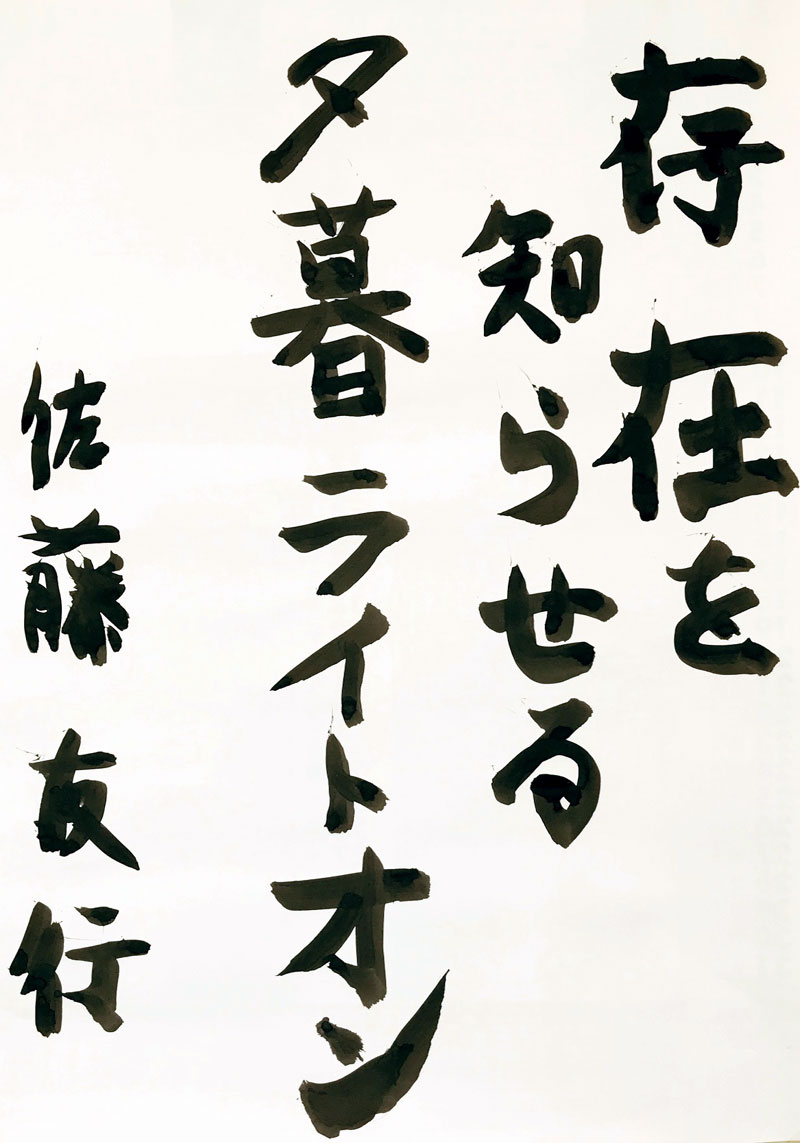 存在を
知らせる
夕暮ライトオン
佐藤友行